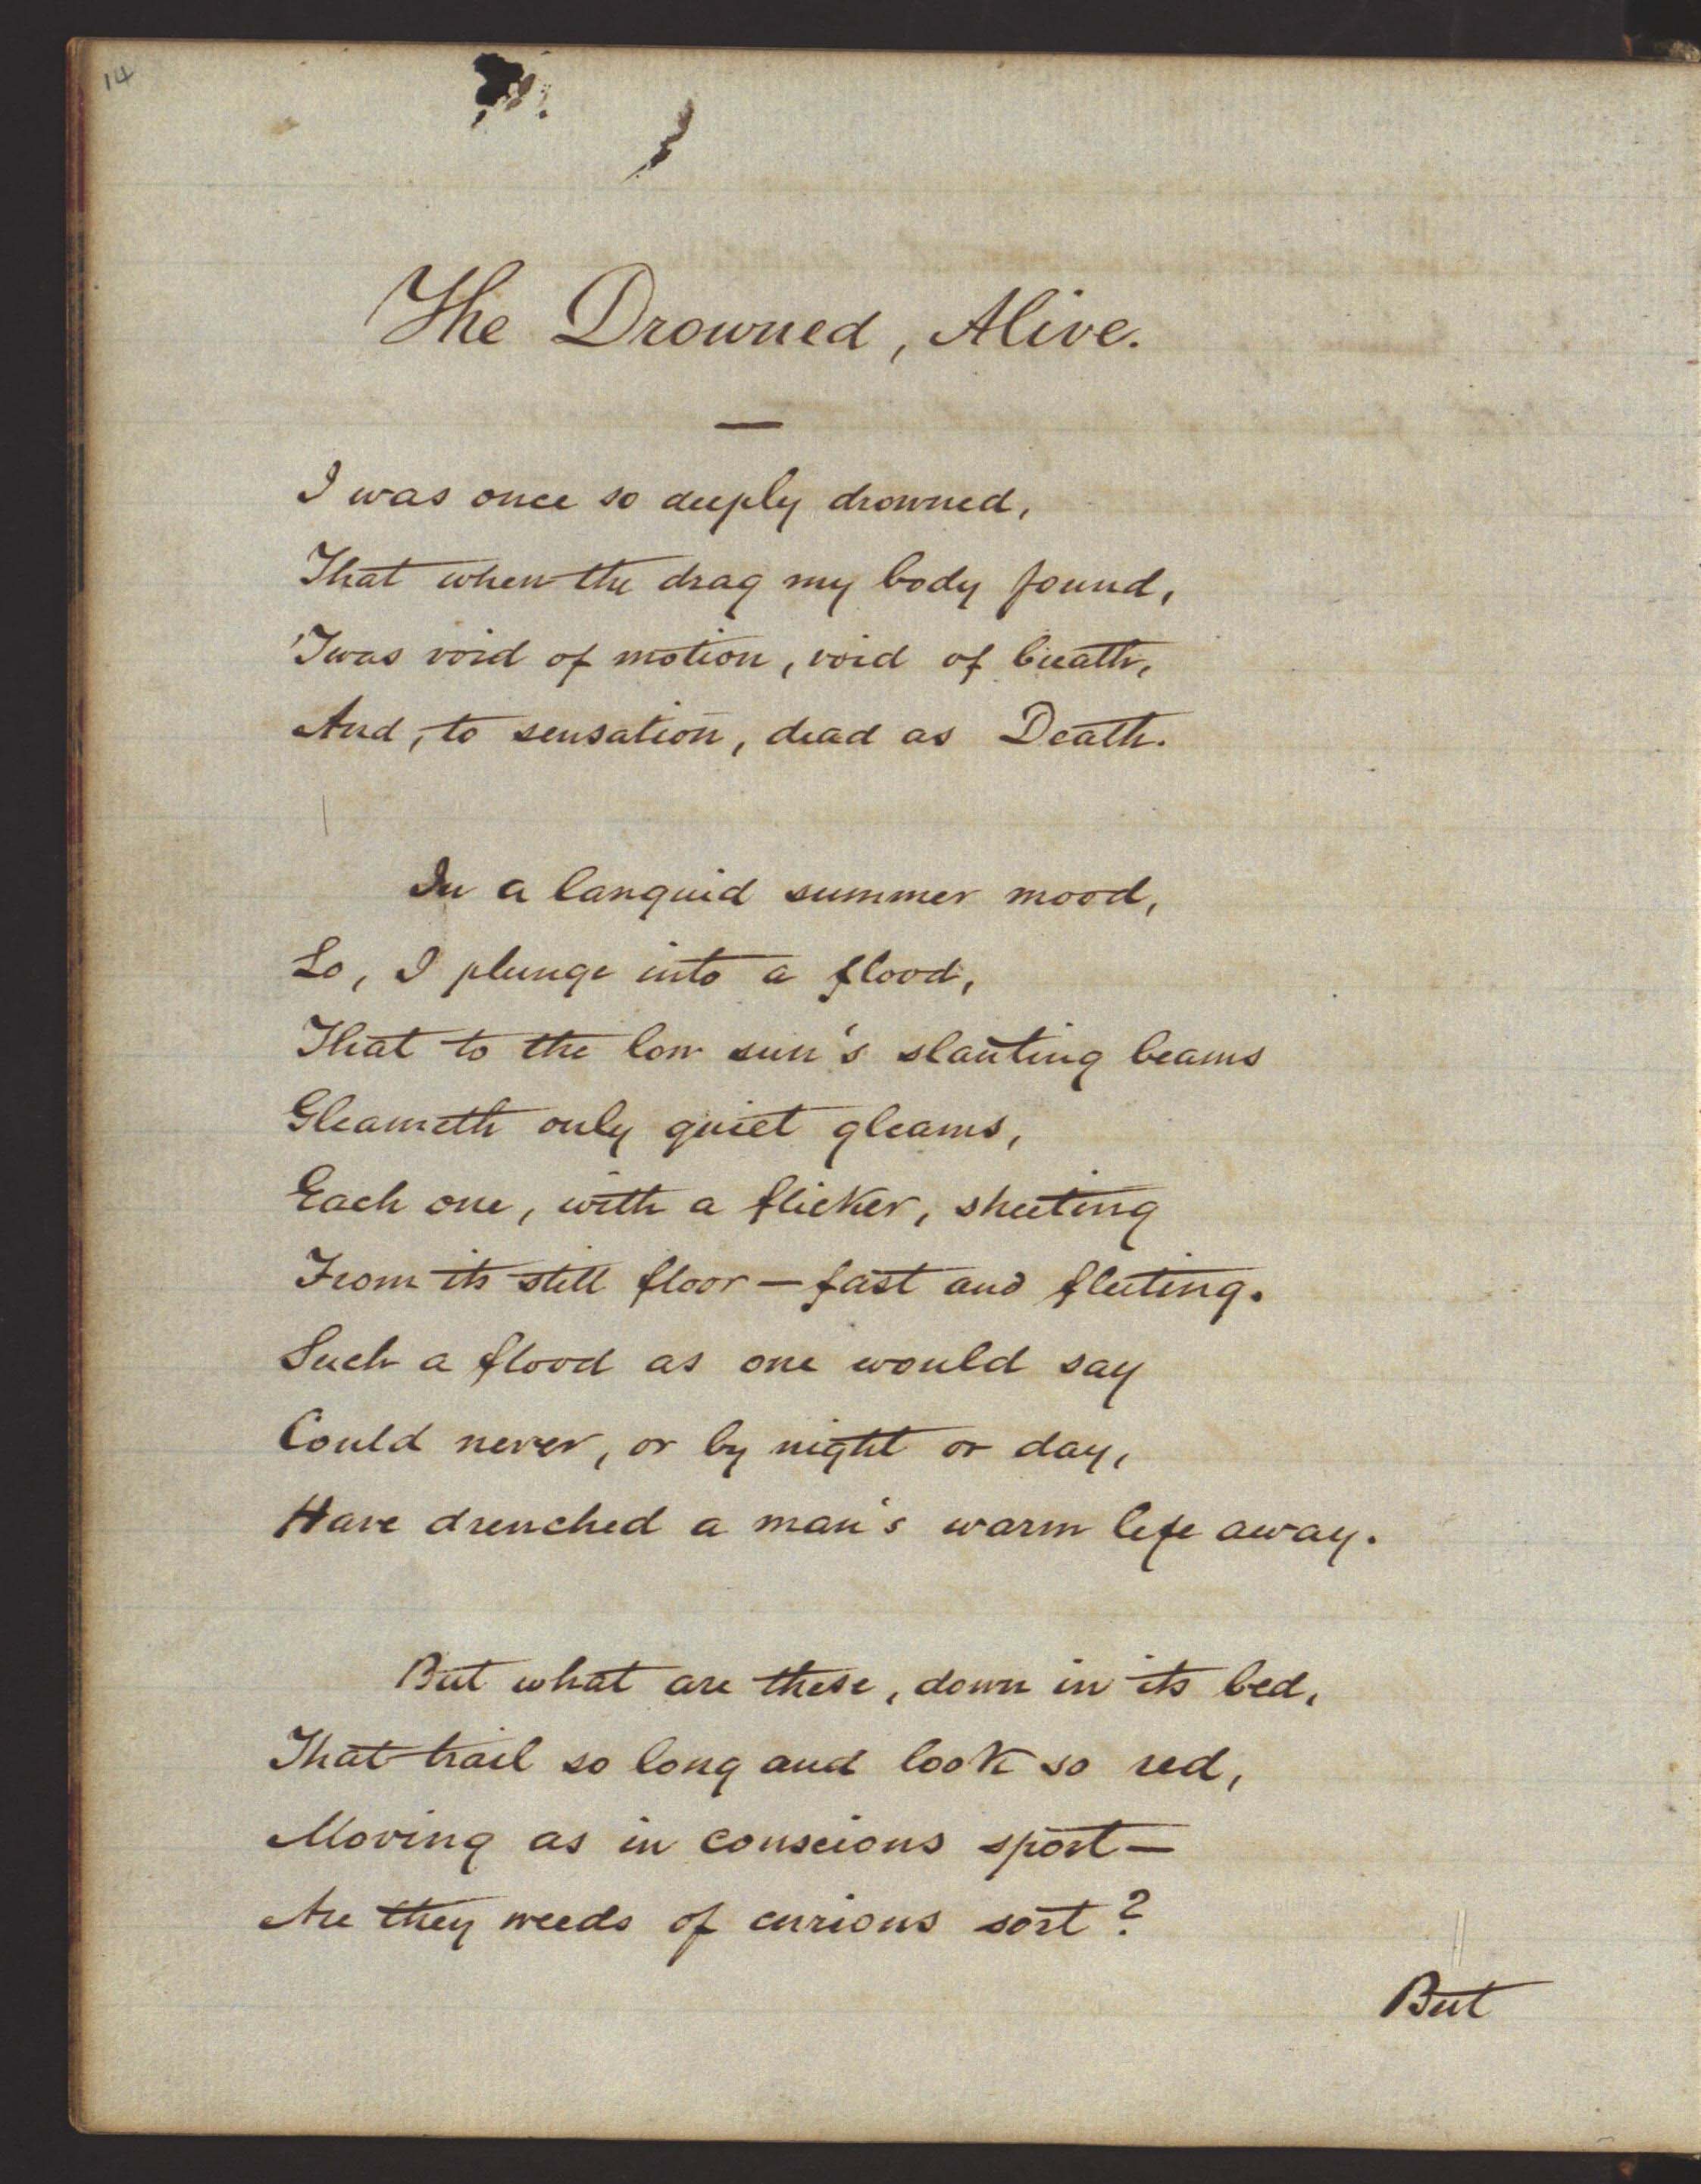 14
The Drowned, Alive.
I was once so deeply drowned,
That when the drag my body found,
'Twas void of motion, void of breath,
And, to sensation, dead as Death.
In a languid summer mood,
Lo, I plunge into a flood,
That to the low sun's slanting beams
Gleameth only quiet gleams,
Each one, with a flicker, sheeting
From its still floor — fast and fleeting.
Such a flood as one would say
Could never, or by night or day,
Have drenched a man's warm life away.
But what are these, down in its bed,
That trail so long and look so red,
Moving as in conscious sport —
Are they weeds of curious sort?
But